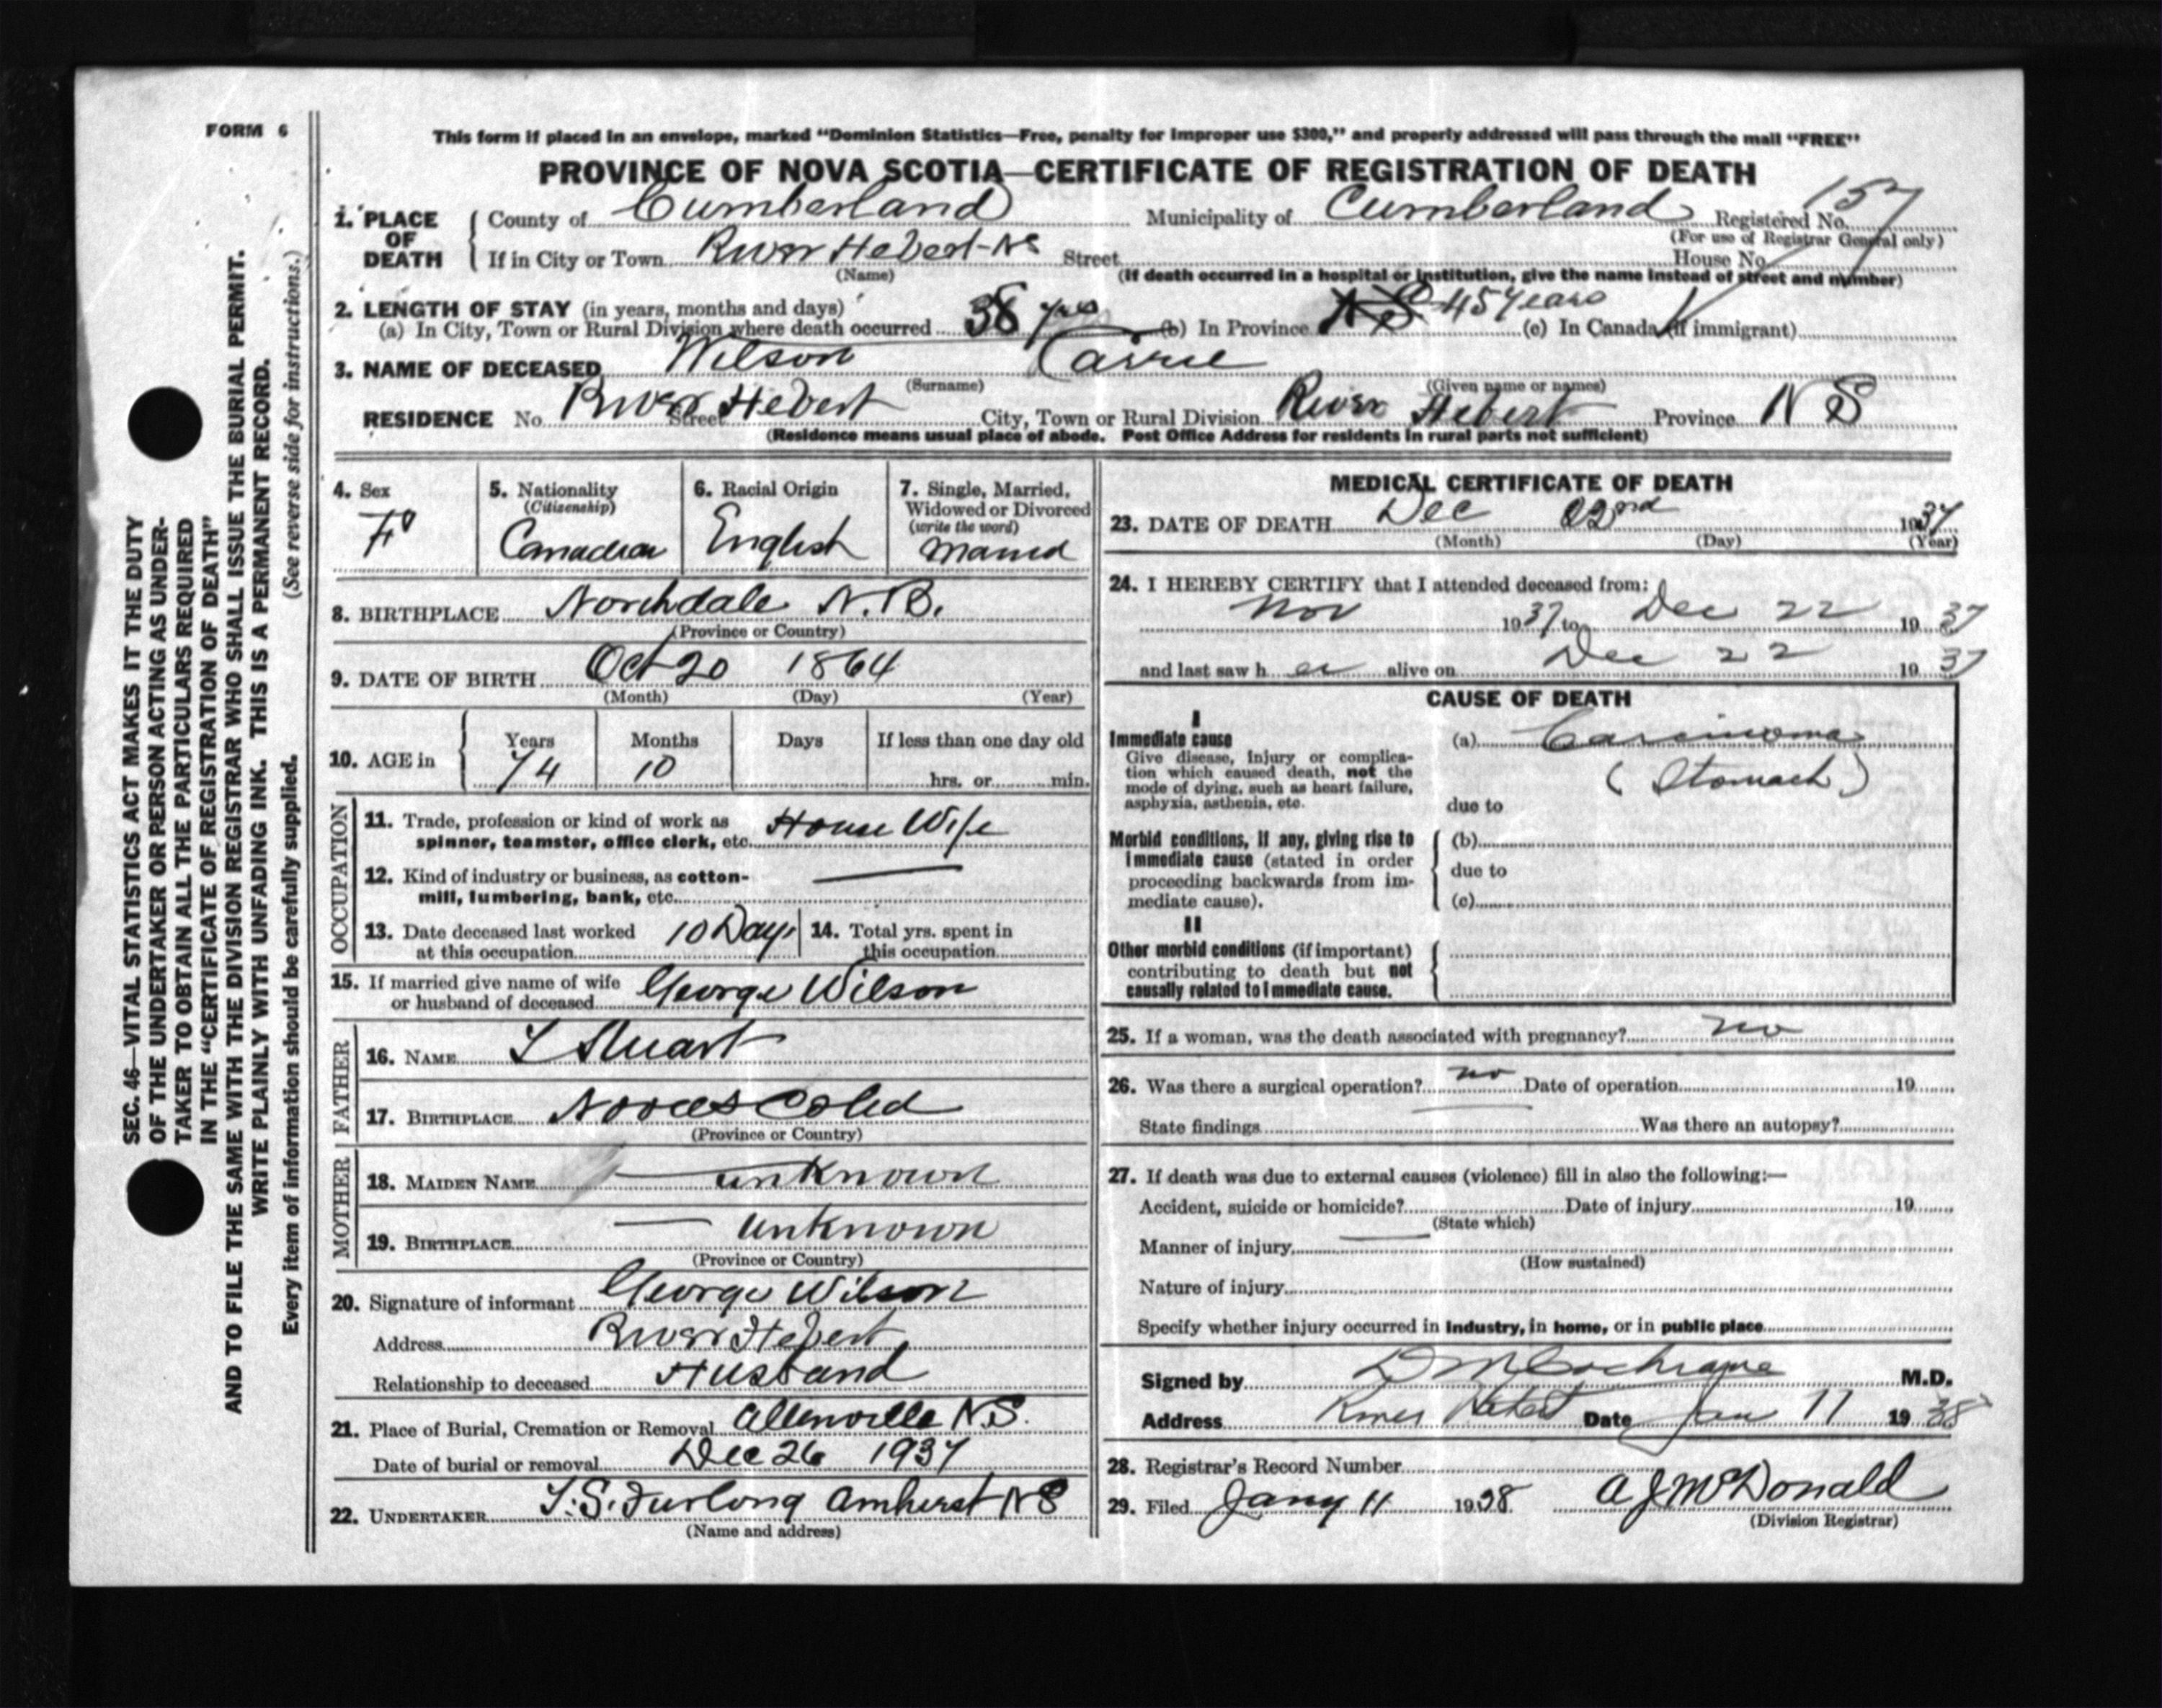 FORM 6
This form if placed in an envelope, marked "Dominion Statistics—Free, penalty for improper use $300," and properly addressed will pass through the mail "FREE"
PROVINCE OF NOVA SCOTIA—CERTIFICATE OF REGISTRATION OF DEATH
1. PLACE OF DEATH
County of Cumberland Municipality of Cumberland Registered No. 157
(For use of Registrar General only)
If in City or Town River Hebert-NS Street House No.
(Name) (If death occurred in a hospital or institution, give the name instead of street and number)
2. LENGTH OF STAY (in years, months and days)
(a) In City, Town or Rural Division where death occurred yrs (b) In Province 45 years (c) In Canada (if immigrant)
3. NAME OF DECEASED Wilson Carrie
(Surname) (Given name or names)
RESIDENCE No. River Hebert Street City, Town or Rural Division River Hebert Province N S
(Residence means usual place of abode. Post Office Address for residents in rural parts not sufficient)
SEC. 46—VITAL STATISTICS ACT MAKES IT THE DUTY
OF THE UNDERTAKER OR PERSON ACTING AS UNDER-
TAKER TO OBTAIN ALL THE PARTICULARS REQUIRED
IN THE "CERTIFICATE OF REGISTRATION OF DEATH"
AND TO FILE THE SAME WITH THE DIVISION REGISTRAR WHO SHALL ISSUE THE BURIAL PERMIT.
WRITE PLAINLY WITH UNFADING INK. THIS IS A PERMANENT RECORD.
Every item of information should be carefully supplied. (See reverse side for instructions.)
4. Sex F
5. Nationality (Citizenship) Canadian
6. Racial Origin English
7. Single, Married, Widowed or Divorced (write the word) Married
8. BIRTHPLACE Northdale N.B.
(Province or Country)
9. DATE OF BIRTH Oct 20 1864
(Month) (Day) (Year)
10. AGE in Years 74 Months 10 Days If less than one day old hrs. or min.
OCCUPATION
11. Trade, profession or kind of work as
spinner, teamster, office clerk, etc. House Wife
12. Kind of industry or business, as cotton-
mill, lumbering, bank, etc. —
13. Date deceased last worked
at this occupation 10 Days
14. Total yrs. spent in
this occupation
15. If married give name of wife
or husband of deceased George Wilson
FATHER
16. NAME Stuart
17. BIRTHPLACE
(Province or Country)
MOTHER
18. MAIDEN NAME — unknown
19. BIRTHPLACE — unknown
(Province or Country)
20. Signature of informant George Wilson
Address River Hebert
Relationship to deceased Husband
21. Place of Burial, Cremation or Removal Allenville N.S.
Date of burial or removal Dec 26 1937
22. UNDERTAKER Furlong Amherst NS
(Name and address)
MEDICAL CERTIFICATE OF DEATH
23. DATE OF DEATH Dec 22nd 1937
(Month) (Day) (Year)
24. I HEREBY CERTIFY that I attended deceased from:
Nov 1937 to Dec 22 1937
and last saw her alive on Dec 22 1937
CAUSE OF DEATH
I
Immediate cause
Give disease, injury or complica-
tion which caused death, not the
mode of dying, such as heart failure,
asphyxia, asthenia, etc.
(a) Carcinoma
(Stomach)
due to
Morbid conditions, if any, giving rise to
immediate cause (stated in order
proceeding backwards from im-
mediate cause).
(b)
due to
(c)
II
Other morbid conditions (if important)
contributing to death but not
causally related to immediate cause.
25. If a woman, was the death associated with pregnancy? no
26. Was there a surgical operation? no Date of operation 19
State findings Was there an autopsy?
27. If death was due to external causes (violence) fill in also the following:—
Accident, suicide or homicide? Date of injury 19
(State which)
Manner of injury
(How sustained)
Nature of injury
Specify whether injury occurred in industry, in home, or in public place
Signed by D M Cochrane M.D.
Address River Hebert Date Jan 11 1938
28. Registrar's Record Number
29. Filed Jany 11 1938. A J McDonald
(Division Registrar)